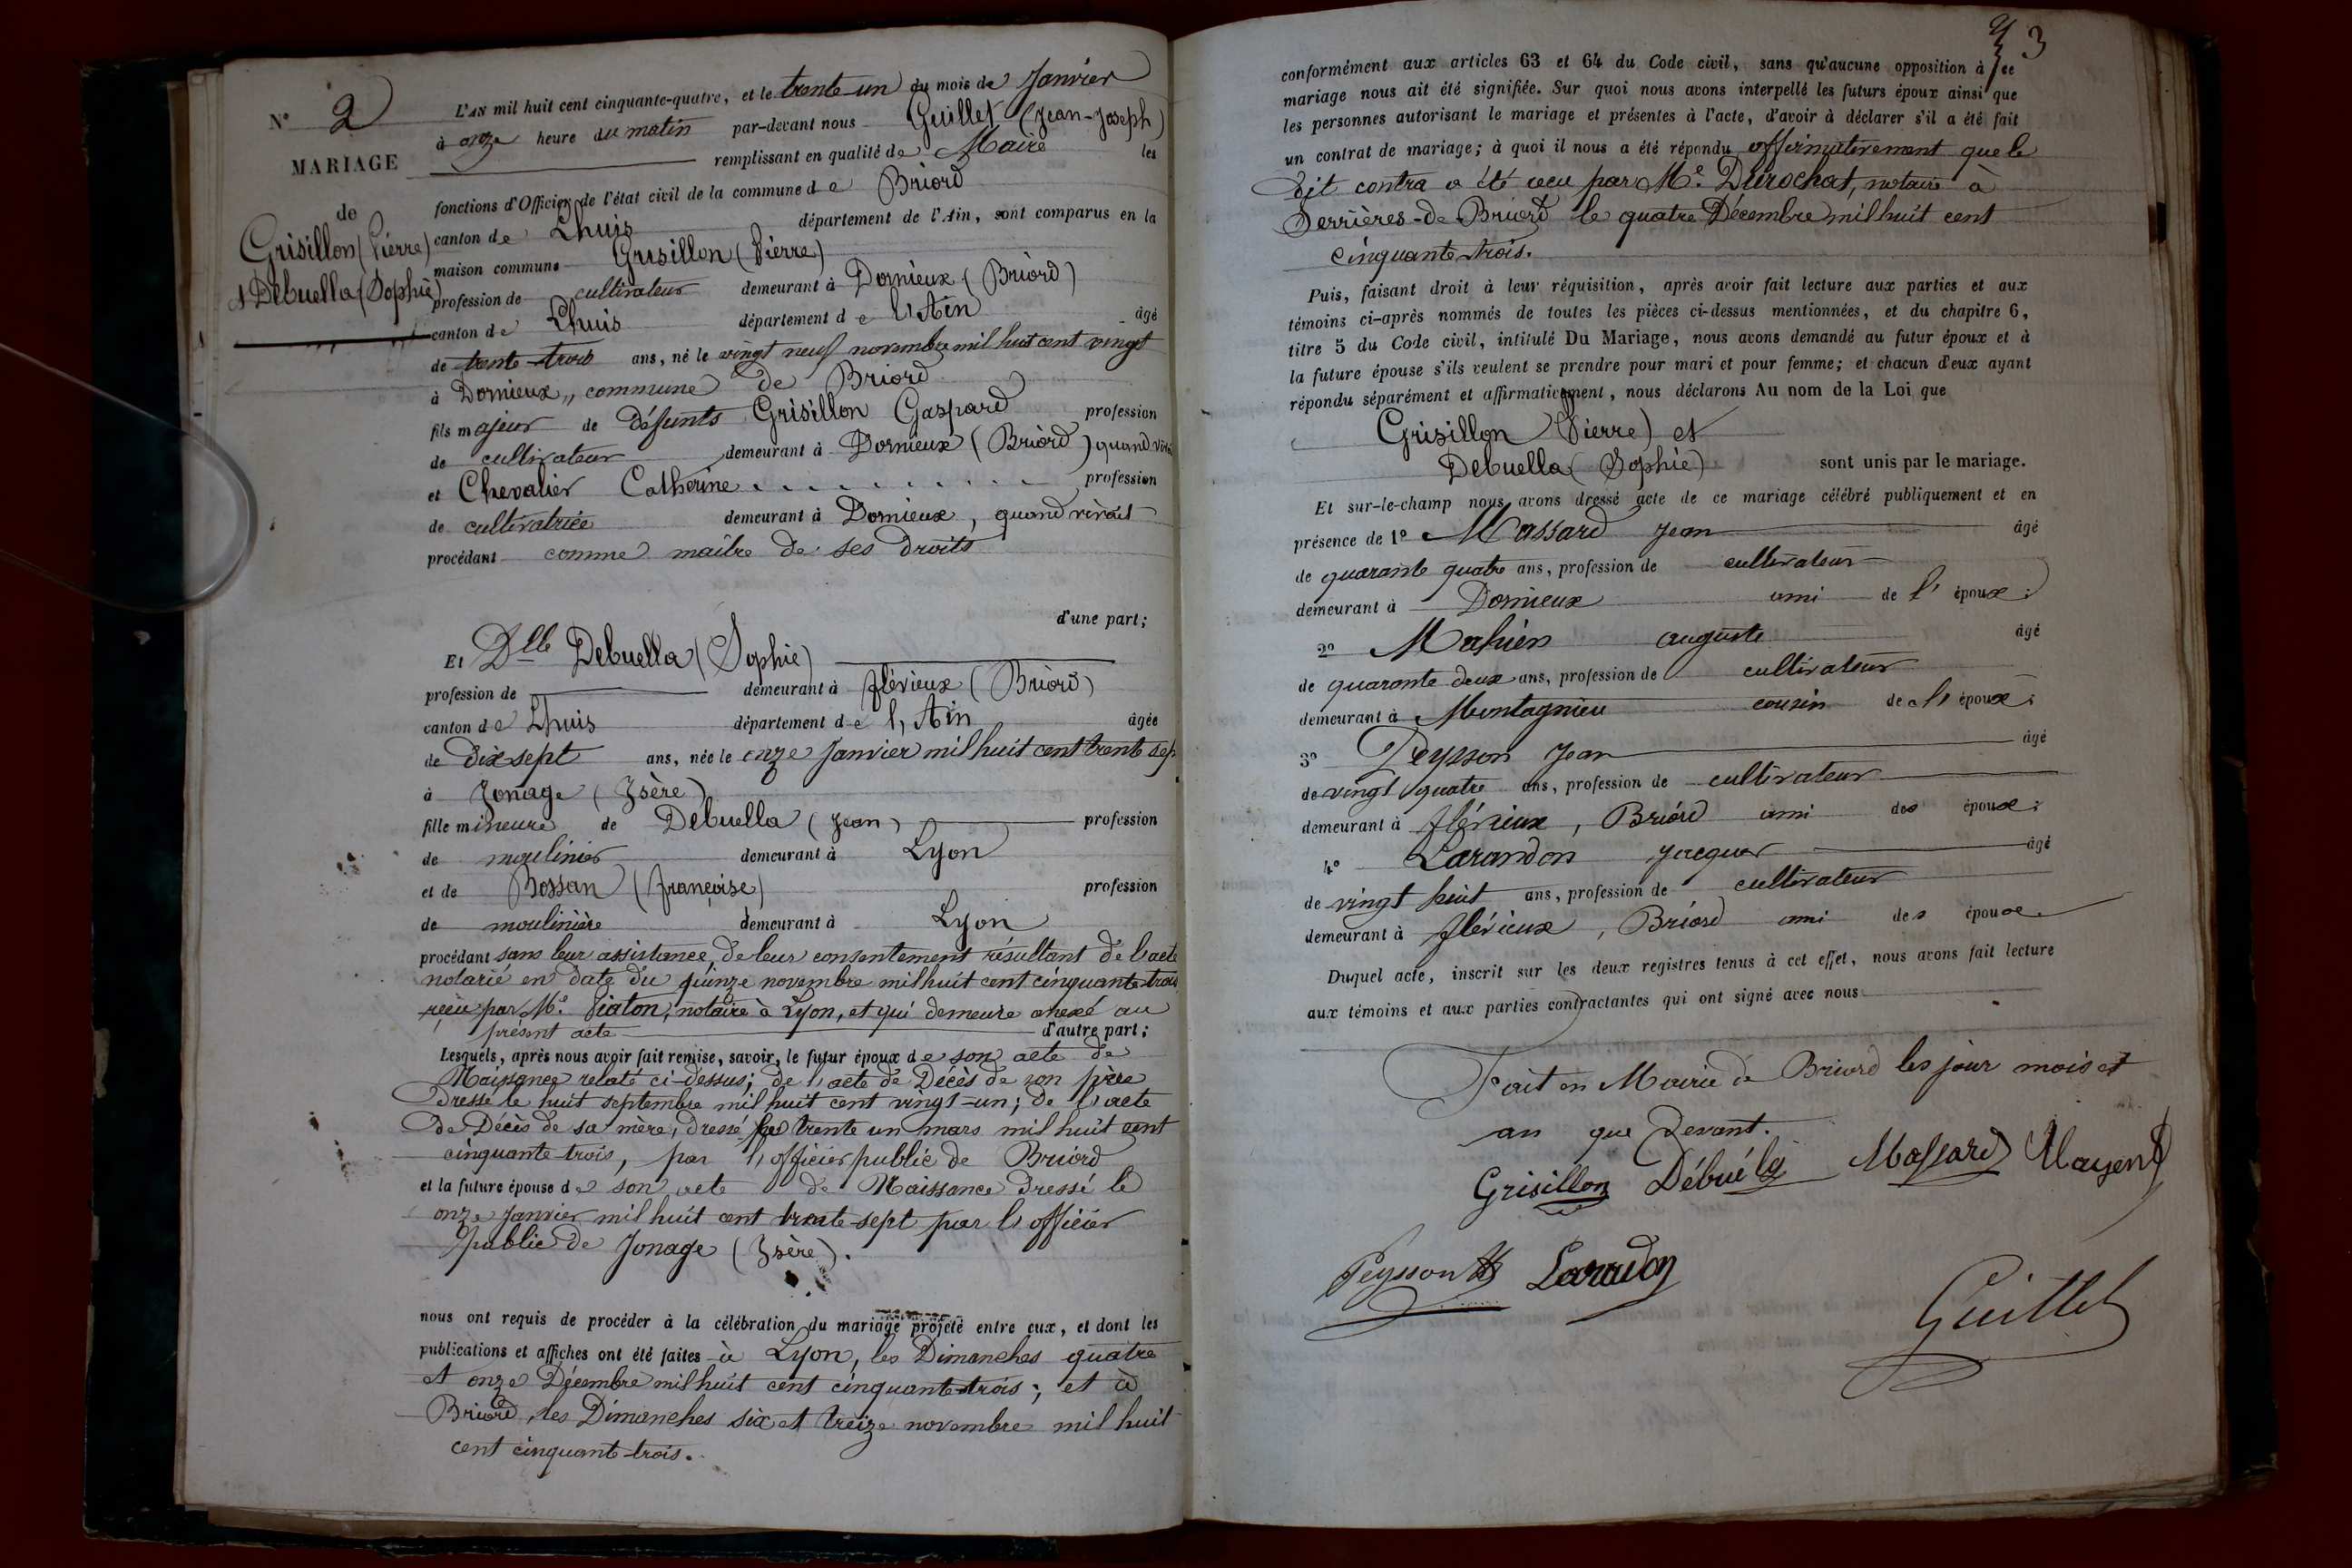 N° 2
MARIAGE
de
Grisillon (Pierre)
et Debuella (Sophie)
L'AN mil huit cent cinquante-quatre, et le trente-un du mois de Janvier
à onze heure du matin par-devant nous Guillet (Jean-Joseph)
remplissant en qualité de Maire les
fonctions d'Officier de l'état civil de la commune de Briord
canton de Lhuis département de l'Ain, sont comparus en la
maison commune Grisillon (Pierre)
profession de cultivateur demeurant à Dornieux (Briord)
canton de Lhuis département de l'Ain âgé
de trente-trois ans, né le vingt neuf novembre mil huit cent vingt
à Dornieux, commune de Briord
fils majeur de défunts Grisillon Gaspard profession
de cultivateur demeurant à Dornieux (Briord) quand vivait
et Chevalier Catherine profession
de cultivatrice demeurant à Dornieux, quand vivait
procédant comme maître de ses droits
d'une part;
Et Dlle Debuella (Sophie)
profession de demeurant à flévieux (Briord)
canton de Lhuis département de l'Ain âgée
de dix-sept ans, née le onze Janvier mil huit cent trente sep
à Jonage (Isère)
fille mineure de Debuella (Jean) profession
de moulinier demeurant à Lyon
et de Bossan (françoise) profession
de moulinière demeurant à Lyon
procédant sans leur assistance, de leur consentement résultant de l'acte
notarié en date du quinze novembre mil huit cent cinquante-trois
reçu par Me. Piaton, notaire à Lyon, et qui demeure anexé au
présent acte d'autre part;
Lesquels, après nous avoir fait remise, savoir, le futur époux de son acte de
Naissance relaté ci-dessus; de l'acte de Décès de son père
dressé le huit septembre mil huit cent vingt-un; de l'acte
de Décès de sa mère, dressé le trente un mars mil huit cent
cinquante-trois, par l'officier public de Briord
et la future épouse de son acte de Naissance dressé le
onze Janvier mil huit cent trente-sept par l'officier
public de Jonage (Isère).
nous ont requis de procéder à la célébration du mariage projeté entre eux, et dont les
publications et affiches ont été faites à Lyon, les Dimanches quatre
et onze Décembre mil huit cent cinquante-trois; et à
Briord, les Dimanches six et treize novembre mil huit
cent cinquante-trois.
3
conformément aux articles 63 et 64 du Code civil, sans qu'aucune opposition à ce
mariage nous ait été signifiée. Sur quoi nous avons interpellé les futurs époux ainsi que
les personnes autorisant le mariage et présentes à l'acte, d'avoir à déclarer s'il a été fait
un contrat de mariage; à quoi il nous a été répondu affirmativement que le
dit contra a été reçu par Me. Durochat, notaire à
Serrières-de-Briord le quatre Décembre mil huit cent
cinquante-trois.
Puis, faisant droit à leur réquisition, après avoir fait lecture aux parties et aux
témoins ci-après nommés de toutes les pièces ci-dessus mentionnées, et du chapitre 6,
titre 5 du Code civil, intitulé Du Mariage, nous avons demandé au futur époux et à
la future épouse s'ils veulent se prendre pour mari et pour femme; et chacun d'eux ayant
répondu séparément et affirmativement, nous déclarons Au nom de la Loi que
Grisillon (Pierre) et
Debuella (Sophie) sont unis par le mariage.
Et sur-le-champ nous avons dressé acte de ce mariage célébré publiquement et en
présence de 1° Massard Jean âgé
de quarante quatre ans, profession de cultivateur
demeurant à Dornieux ami de l' époux;
2° Mahien auguste âgé
de quarante deux ans, profession de cultivateur
demeurant à Montagnieu cousin de l' époux;
3° Peysson Jean âgé
de vingt quatre ans, profession de cultivateur
demeurant à flévieux, Briord ami des époux;
4° Larandon Jacques âgé
de vingt huit ans, profession de cultivateur
demeurant à flévieux, Briord ami des époux
Duquel acte, inscrit sur les deux registres tenus à cet effet, nous avons fait lecture
aux témoins et aux parties contractantes qui ont signé avec nous
Fait en Mairie de Briord les jour mois et
an que devant.
Grisillon Débuéla Massard Mayent
Peysson Larandon
Guillet